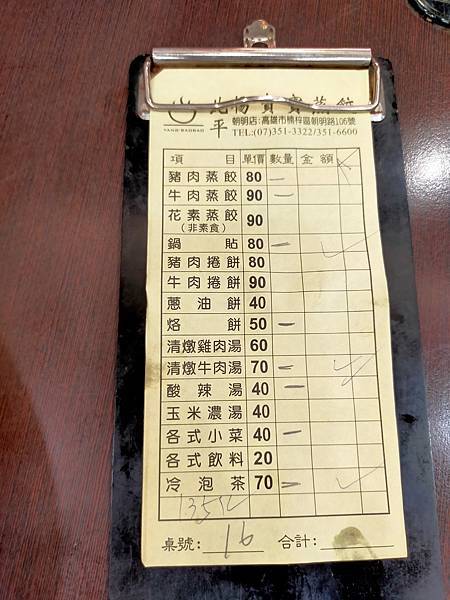 北平楊寶寶蒸餃
YANG BAOBAO
朝明店:高雄市楠梓區朝明路106號
TEL:(07)351-3322/351-6600
項目 單價 數量 金額
豬肉蒸餃 80 一
牛肉蒸餃 90 一
花素蒸餃 90
(非素食)
鍋貼 80 一 ✓
豬肉捲餅 80
牛肉捲餅 90
蔥油餅 40
烙餅 50 一
清燉雞肉湯 60
清燉牛肉湯 70 一 ✓
酸辣湯 40 一
玉米濃湯 40
各式小菜 40 一
各式飲料 20
冷泡茶 70 一 ✓
桌號: 16 合計: